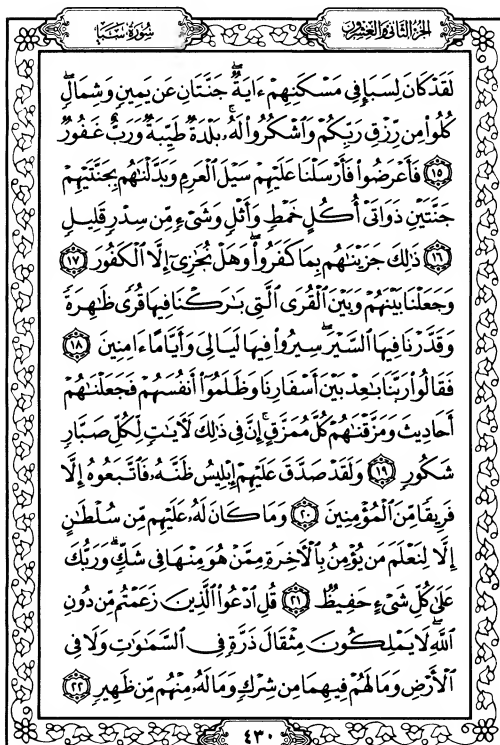 الجزء الثاني والعشرون
سُورَةُ سَبَإٍ
لَقَدْ كَانَ لِسَبَإٍ فِى مَسْكَنِهِمْ ءَايَةٌۖ جَنَّتَانِ عَن يَمِينٍ وَشِمَالٍۖ
كُلُوا۟ مِن رِّزْقِ رَبِّكُمْ وَٱشْكُرُوا۟ لَهُۥۚ بَلْدَةٌ طَيِّبَةٌ وَرَبٌّ غَفُورٌ
﴿١٥﴾ فَأَعْرَضُوا۟ فَأَرْسَلْنَا عَلَيْهِمْ سَيْلَ ٱلْعَرِمِ وَبَدَّلْنَٰهُم بِجَنَّتَيْهِمْ
جَنَّتَيْنِ ذَوَاتَىْ أُكُلٍ خَمْطٍ وَأَثْلٍ وَشَىْءٍ مِّن سِدْرٍ قَلِيلٍ
﴿١٦﴾ ذَٰلِكَ جَزَيْنَٰهُم بِمَا كَفَرُوا۟ۖ وَهَلْ نُجَٰزِىٓ إِلَّا ٱلْكَفُورَ ﴿١٧﴾
وَجَعَلْنَا بَيْنَهُمْ وَبَيْنَ ٱلْقُرَى ٱلَّتِى بَٰرَكْنَا فِيهَا قُرًى ظَٰهِرَةً
وَقَدَّرْنَا فِيهَا ٱلسَّيْرَۖ سِيرُوا۟ فِيهَا لَيَالِىَ وَأَيَّامًا ءَامِنِينَ ﴿١٨﴾
فَقَالُوا۟ رَبَّنَا بَٰعِدْ بَيْنَ أَسْفَارِنَا وَظَلَمُوٓا۟ أَنفُسَهُمْ فَجَعَلْنَٰهُمْ
أَحَادِيثَ وَمَزَّقْنَٰهُمْ كُلَّ مُمَزَّقٍۚ إِنَّ فِى ذَٰلِكَ لَءَايَٰتٍ لِّكُلِّ صَبَّارٍ
شَكُورٍ ﴿١٩﴾ وَلَقَدْ صَدَّقَ عَلَيْهِمْ إِبْلِيسُ ظَنَّهُۥ فَٱتَّبَعُوهُ إِلَّا
فَرِيقًا مِّنَ ٱلْمُؤْمِنِينَ ﴿٢٠﴾ وَمَا كَانَ لَهُۥ عَلَيْهِم مِّن سُلْطَٰنٍ
إِلَّا لِنَعْلَمَ مَن يُؤْمِنُ بِٱلْءَاخِرَةِ مِمَّنْ هُوَ مِنْهَا فِى شَكٍّۗ وَرَبُّكَ
عَلَىٰ كُلِّ شَىْءٍ حَفِيظٌ ﴿٢١﴾ قُلِ ٱدْعُوا۟ ٱلَّذِينَ زَعَمْتُم مِّن دُونِ
ٱللَّهِۖ لَا يَمْلِكُونَ مِثْقَالَ ذَرَّةٍ فِى ٱلسَّمَٰوَٰتِ وَلَا فِى
ٱلْأَرْضِ وَمَا لَهُمْ فِيهِمَا مِن شِرْكٍ وَمَا لَهُۥ مِنْهُم مِّن ظَهِيرٍ ﴿٢٢﴾
٤٣٠